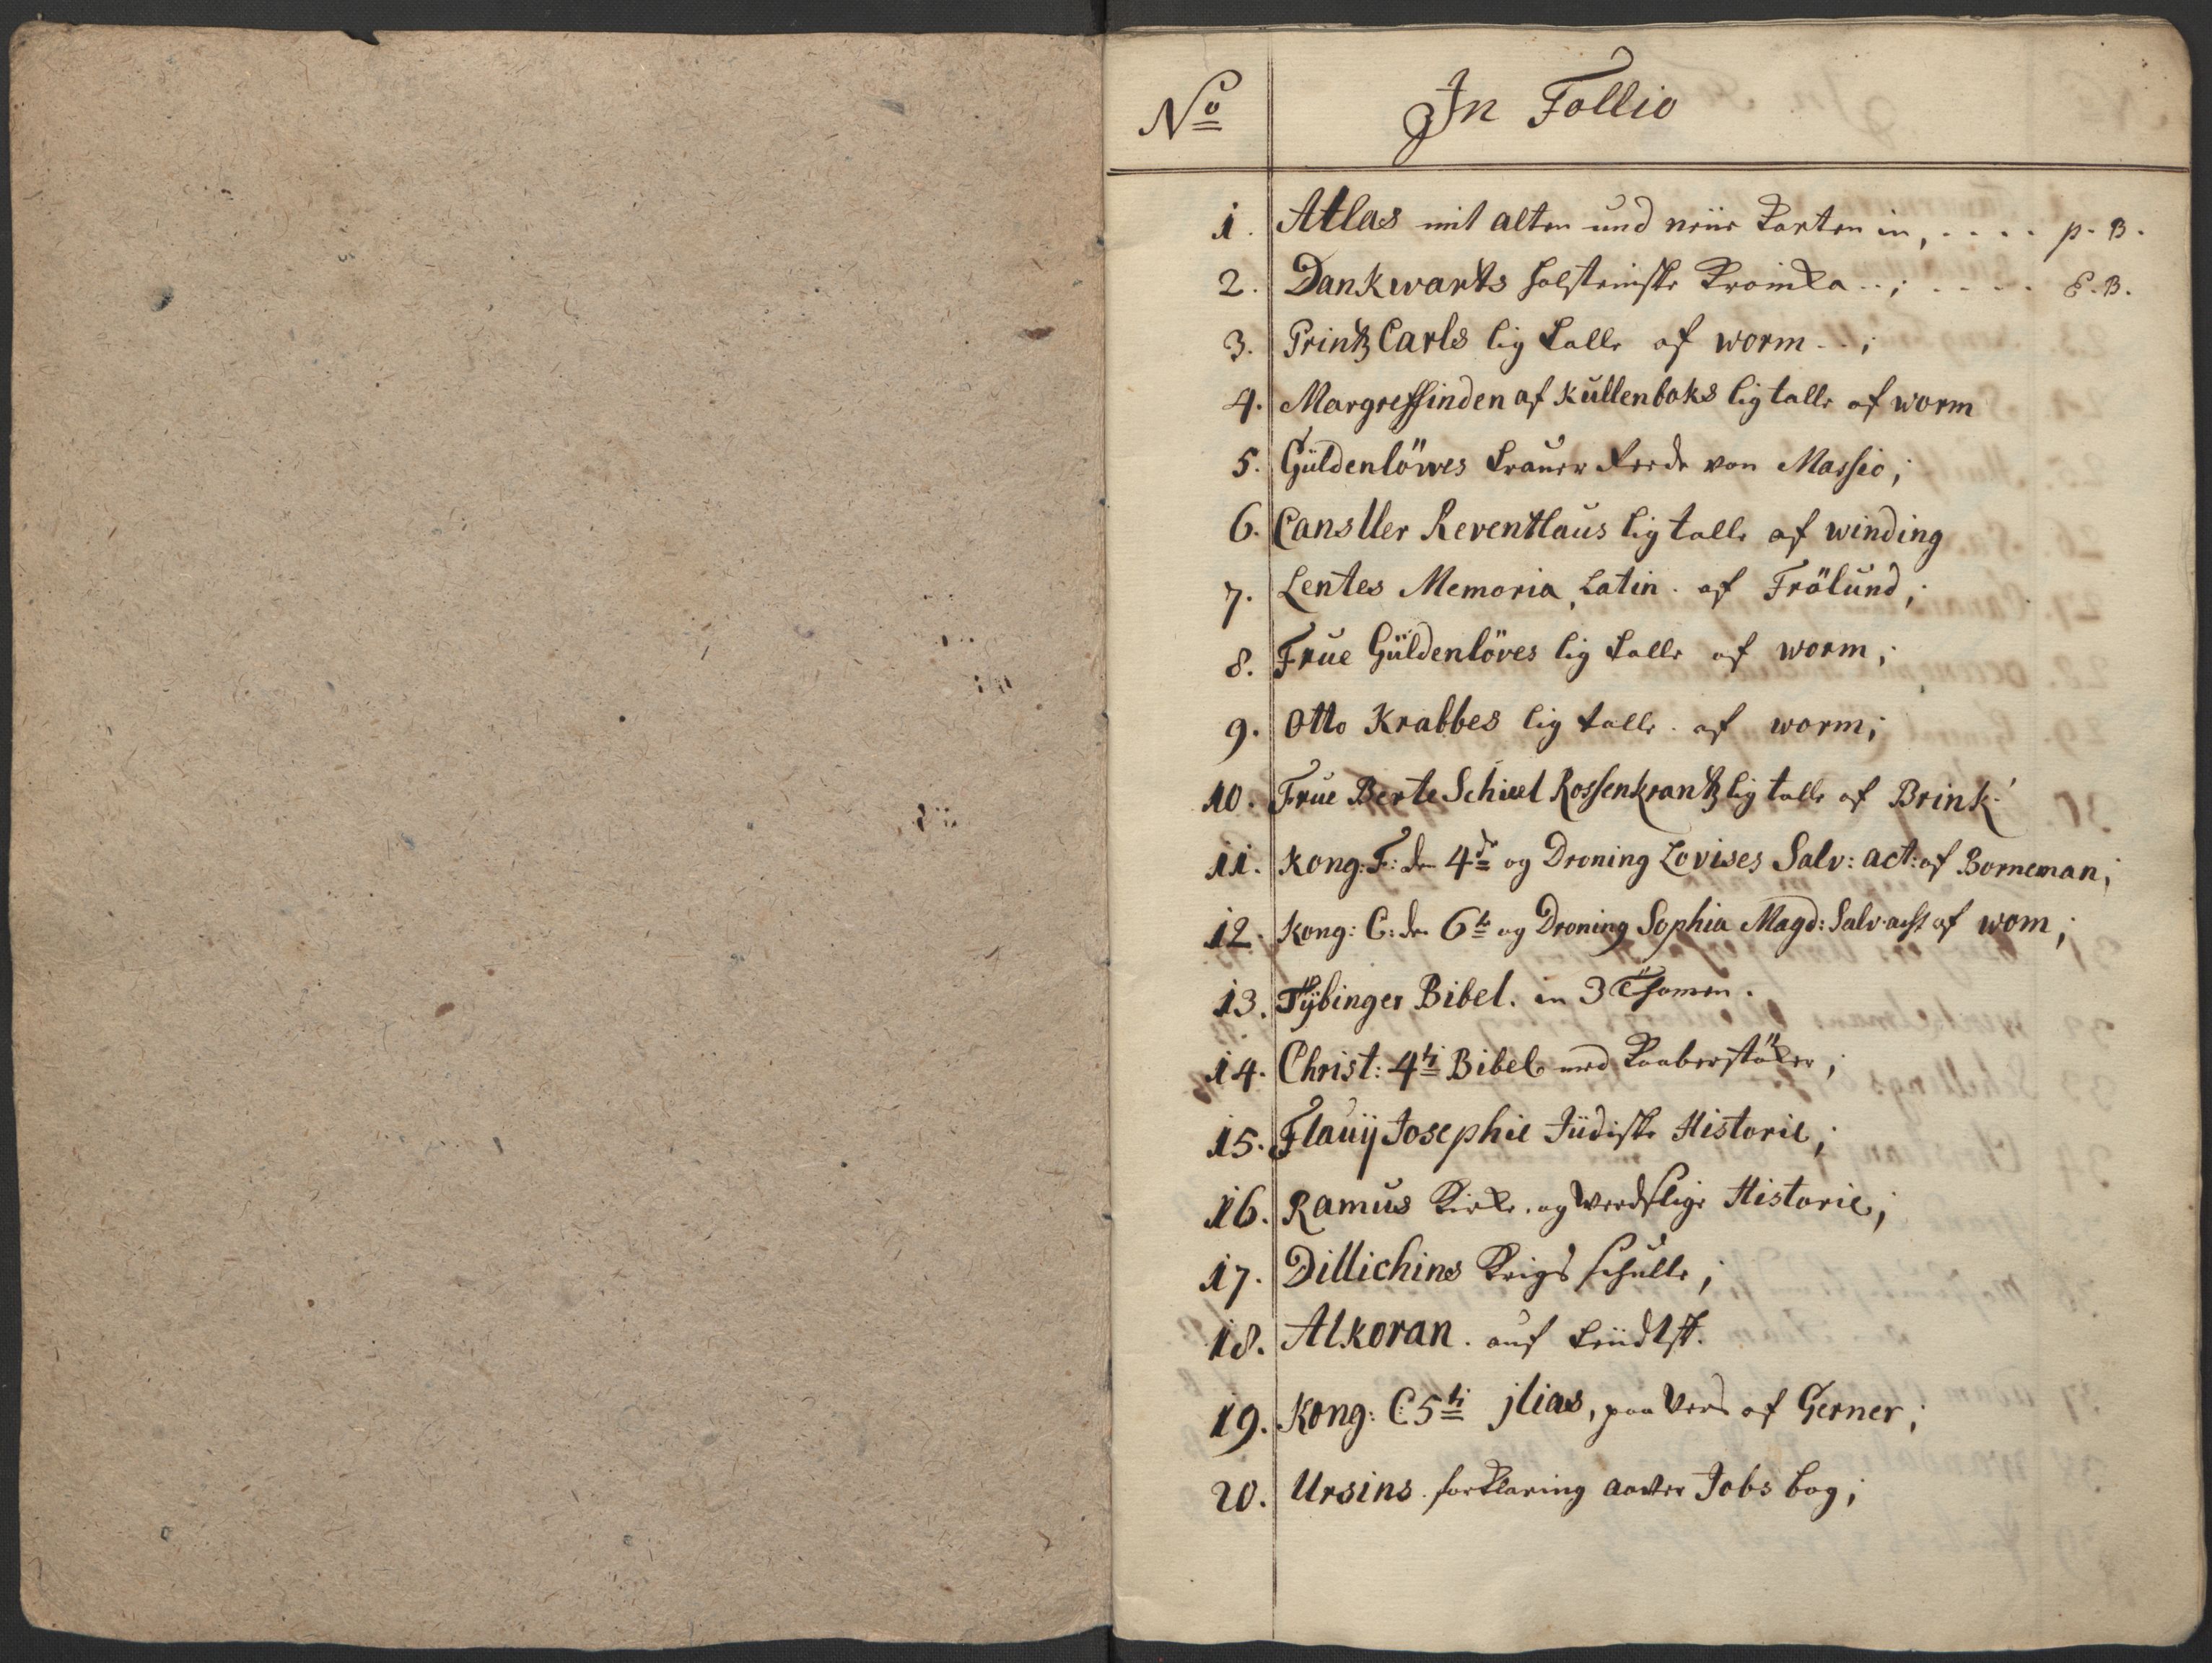 No In Follio
1. Atlas mit alten und neüe Karten in, .... p. B.
2. Dankwarts holsteinske Kroinka ..; .... E. B.
3. Printz Carls lig talle af worm ..;
4. Margreffinden af Kullenbaks lig talle af worm
5. Güldenlöwes Trauer Reede von Massio;
6. Cansller Reventlaus lig talle af winding
7. Lentes Memoria, Latin. af Frölund;
8. Frue Güldenlöves lig talle af worm;
9. Otto Krabbes lig talle. af worm;
10. Frue Berte Scheel Rossenkrantz lig talle af Brink.
11. Kong: F: den 4de og Droning Lovises Salv: act: af Borneman;
12. Kong: C: den 6te og Droning Sophia Magd: Salv. act af wom;
13. Tÿbinger Bibel. in 3 Thomen.
14. Christ: 4ti Bibel med Kaaberstöker;
15. Flauÿ Josephie Jüdiske Historie;
16. Ramus Kirke. og Werdslige Historie;
17. Dillichins Krigs schulle;
18. Alkoran. auf
19. Kong: C 5ti jlias, paa Vers af Gerner;
20. Ursins. forklaring aaver Jobs bog;